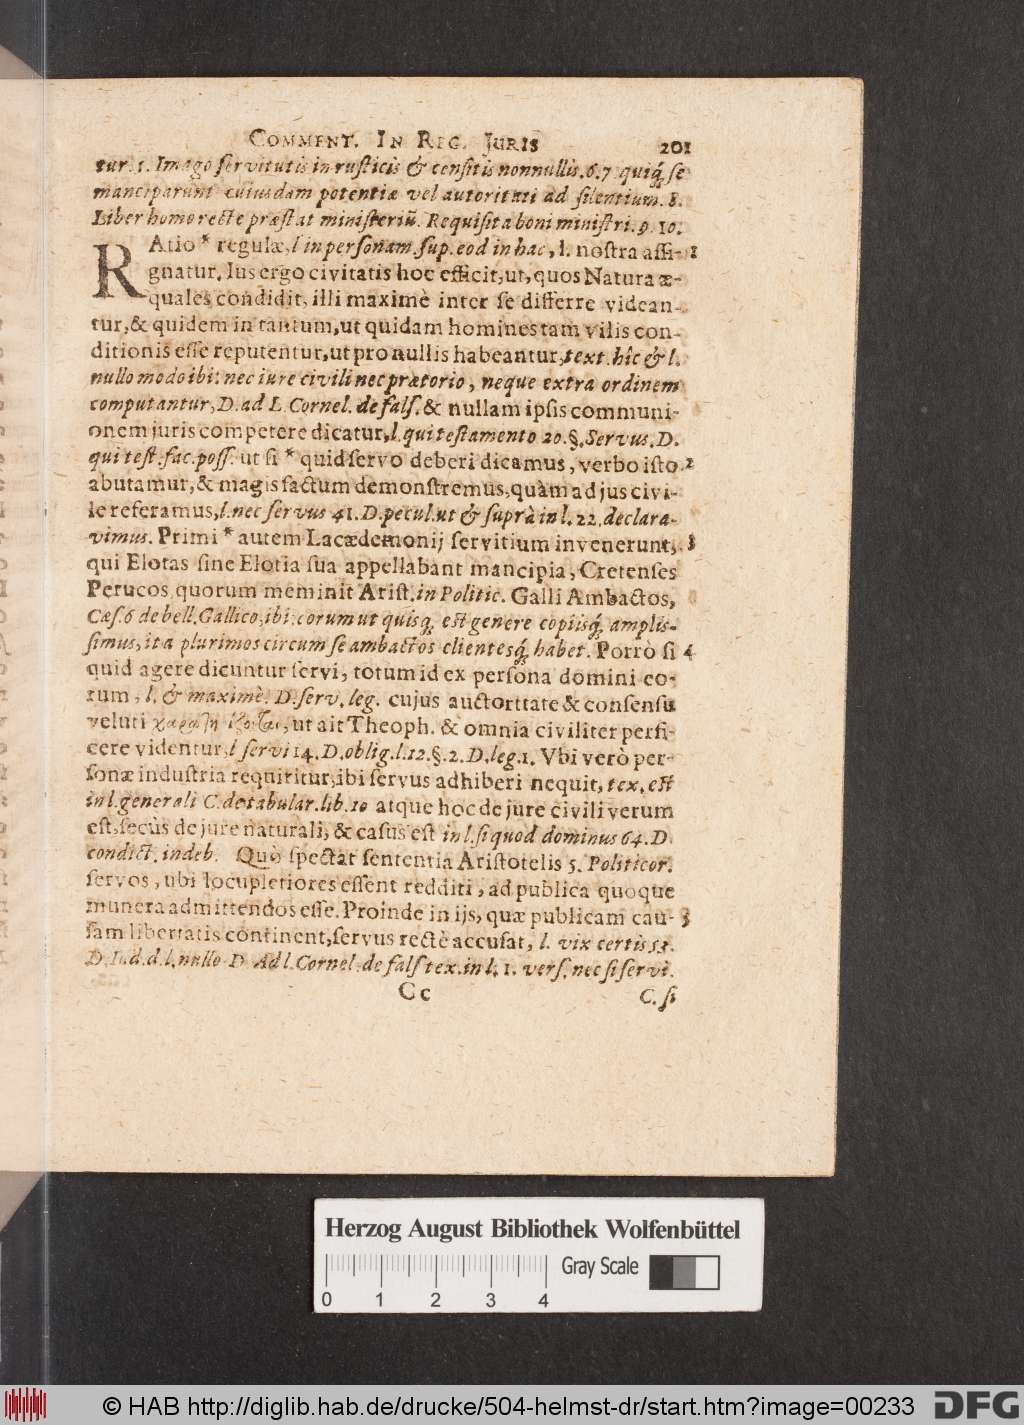 COMMENT. IN REG. JURIS 201
tur. 5. Imago servitutis in rusticis & censitis nonnullis. 6. 7 quiq́; se
manciparunt cuiusdam potentiæ vel autoritati ad silentium. 8.
Liber homo recte præstat ministeriũ. Requisita boni ministri. 9. 10.
RAtio * regulæ, l in personam. sup. eod in hac, l. nostra assi- 1
gnatur. Ius ergo civitatis hoc efficit, ut, quos Natura æ-
quales condidit, illi maximè inter se differre videan-
tur, & quidem in tantum, ut quidam homines tam vilis con-
ditionis esse reputentur, ut pro nullis habeantur, text. hîc & l.
nullo modo ibi: nec iure civili nec prætorio, neque extra ordinem
computantur, D. ad L. Cornel. de fals. & nullam ipsis communi-
onem juris competere dicatur, l. qui testamento 20. §. Servus. D.
qui test. fac. poss. ut si * quid servo deberi dicamus, verbo isto 2
abutamur, & magis factum demonstremus, quàm ad jus civi-
le referamus, l. nec servus 41. D. pecul. ut & suprà in l. 22. declara-
vimus. Primi * autem Lacædemonij servitium invenerunt, 3
qui Elotas sine Elotia sua appellabant mancipia, Cretenses
Perucos quorum meminit Arist. in Politic. Galli Ambactos,
Cæs. 6 de bell. Gallico, ibi: corum ut quisq; est genere copiisq́; amplis-
simus, ita plurimos circum se ambactos clientesq́; habet. Porrò si 4
quid agere dicuntur servi, totum id ex persona domini eo-
rum, l. & maximè. D. serv. leg. cujus auctorttate & consensu
veluti, ut ait Theoph. & omnia civiliter perfi-
cere videntur, l servi 14. D. oblig. l. 12. §. 2. D. leg. 1. Vbi verò per-
sonæ industria requiritur, ibi servus adhiberi nequit, tex. est
in l. generali C. de tabular. lib. 10 atque hoc de jure civili verum
est, secùs de jure naturali, & casus est in l. si quod dominus 64. D.
condict. indeb. Quò spectat sententia Aristotelis 5. Politicor.
servos, ubi locupletiores essent redditi, ad publica quoque
munera admittendos esse. Proinde in ijs, quæ publicam cau- 5
sam libertatis continent, servus rectè accusat, l. vix certis 53.
D. Iud. d. l. nullo D. Ad l. Cornel. de fals tex. in l. 1. vers. nec si servi.
Cc C. si
Herzog August Bibliothek Wolfenbüttel
Gray Scale
0 1 2 3 4
© HAB http://diglib.hab.de/drucke/504-helmst-dr/start.htm?image=00233 DFG